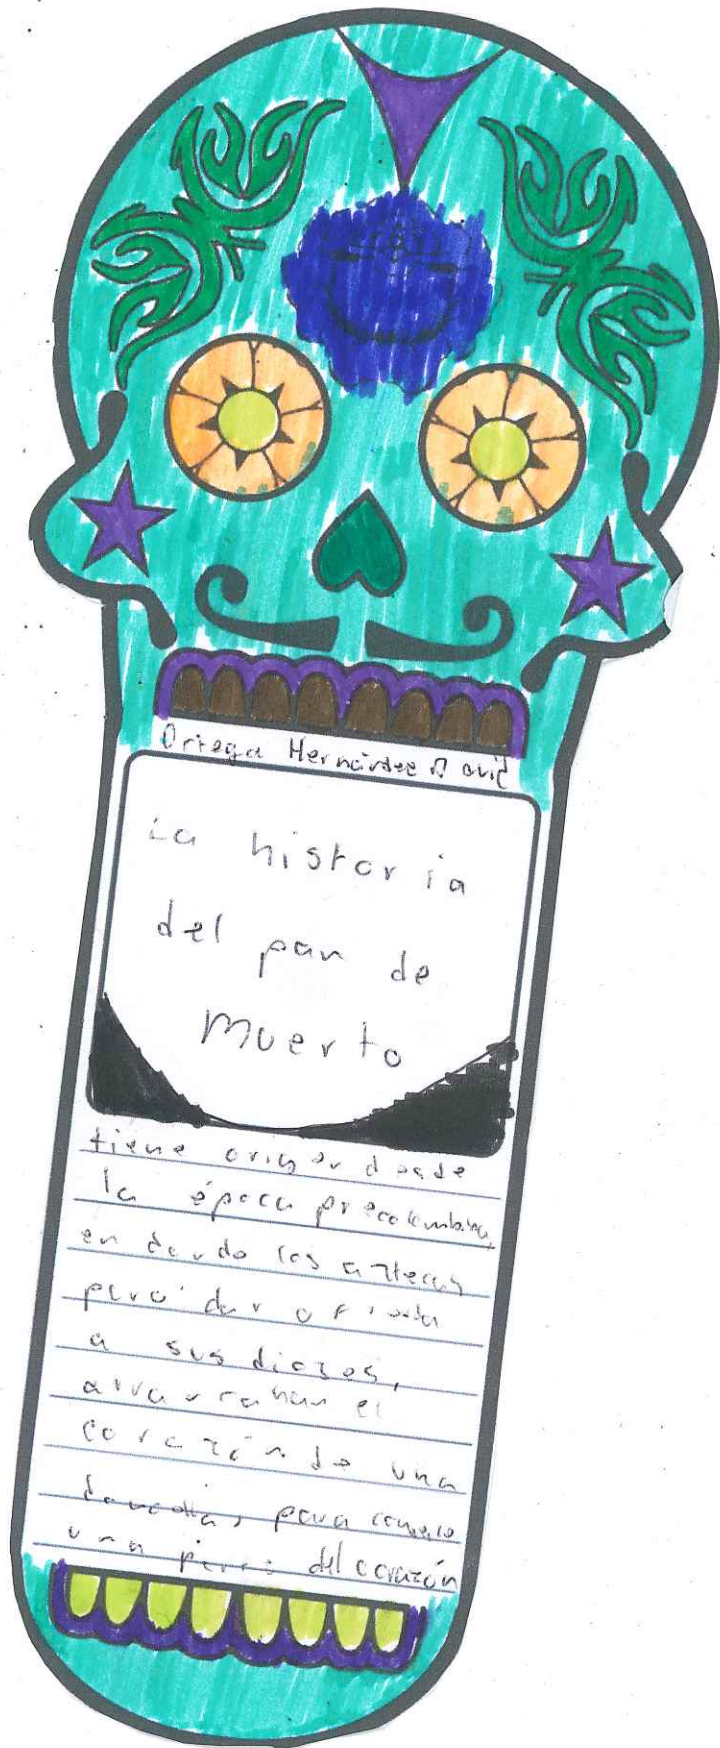 Ortega Hernández David
La historia
del pan de
Muerto
tiene origen desde
la época precolombina,
en donde los aztecas
para dar ofrenda
a sus dioses,
arrancaban el
corazón de una
doncella, para
una del corazón